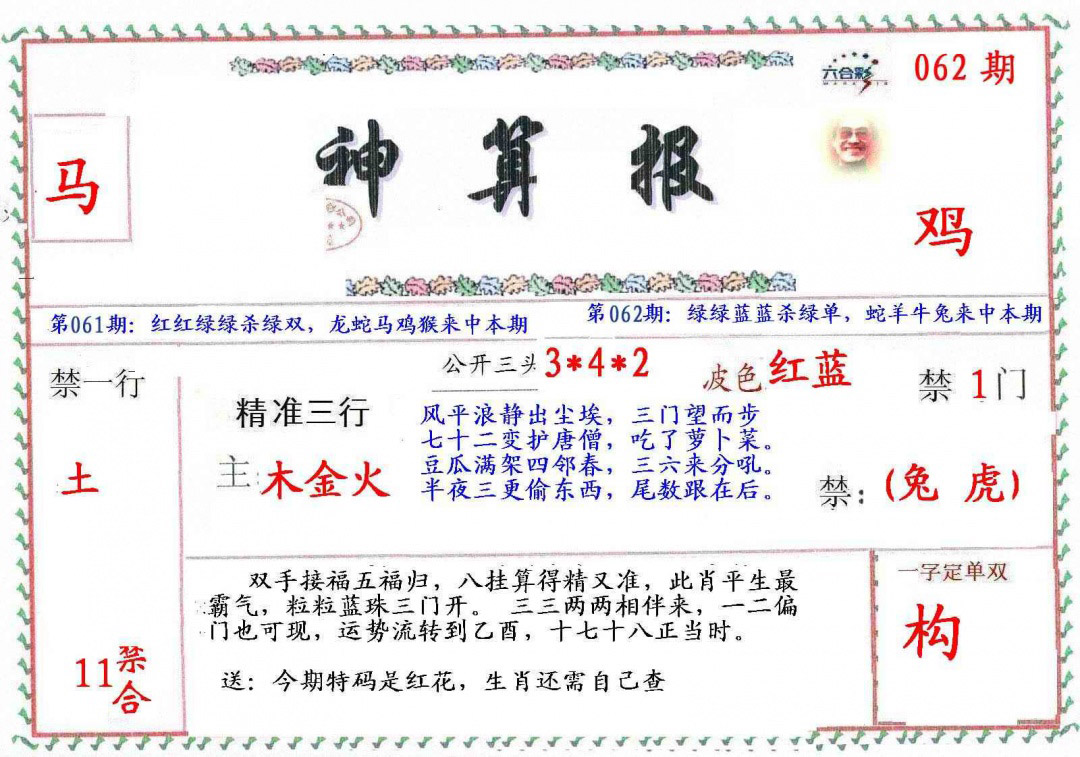 六合彩
062期
神算报
马
鸡
第061期：红红绿绿杀绿双，龙蛇马鸡猴来中本期
第062期：绿绿蓝蓝杀绿单，蛇羊牛兔来中本期
公开三头
3*4*2
波色
红蓝
禁一行
禁1门
精准三行
风平浪静出尘埃，三门望而步
七十二变护唐僧，吃了萝卜菜。
豆瓜满架四邻春，三六来分吼。
半夜三更偷东西，尾数跟在后。
土
主：木金火
禁：(兔 虎)
双手接福五福归，八挂算得精又准，此肖平生最
霸气，粒粒蓝珠三门开。 三三两两相伴来，一二偏
门也可现，运势流转到乙酉，十七十八正当时。
送：今期特码是红花，生肖还需自己查
一字定单双
构
11禁合